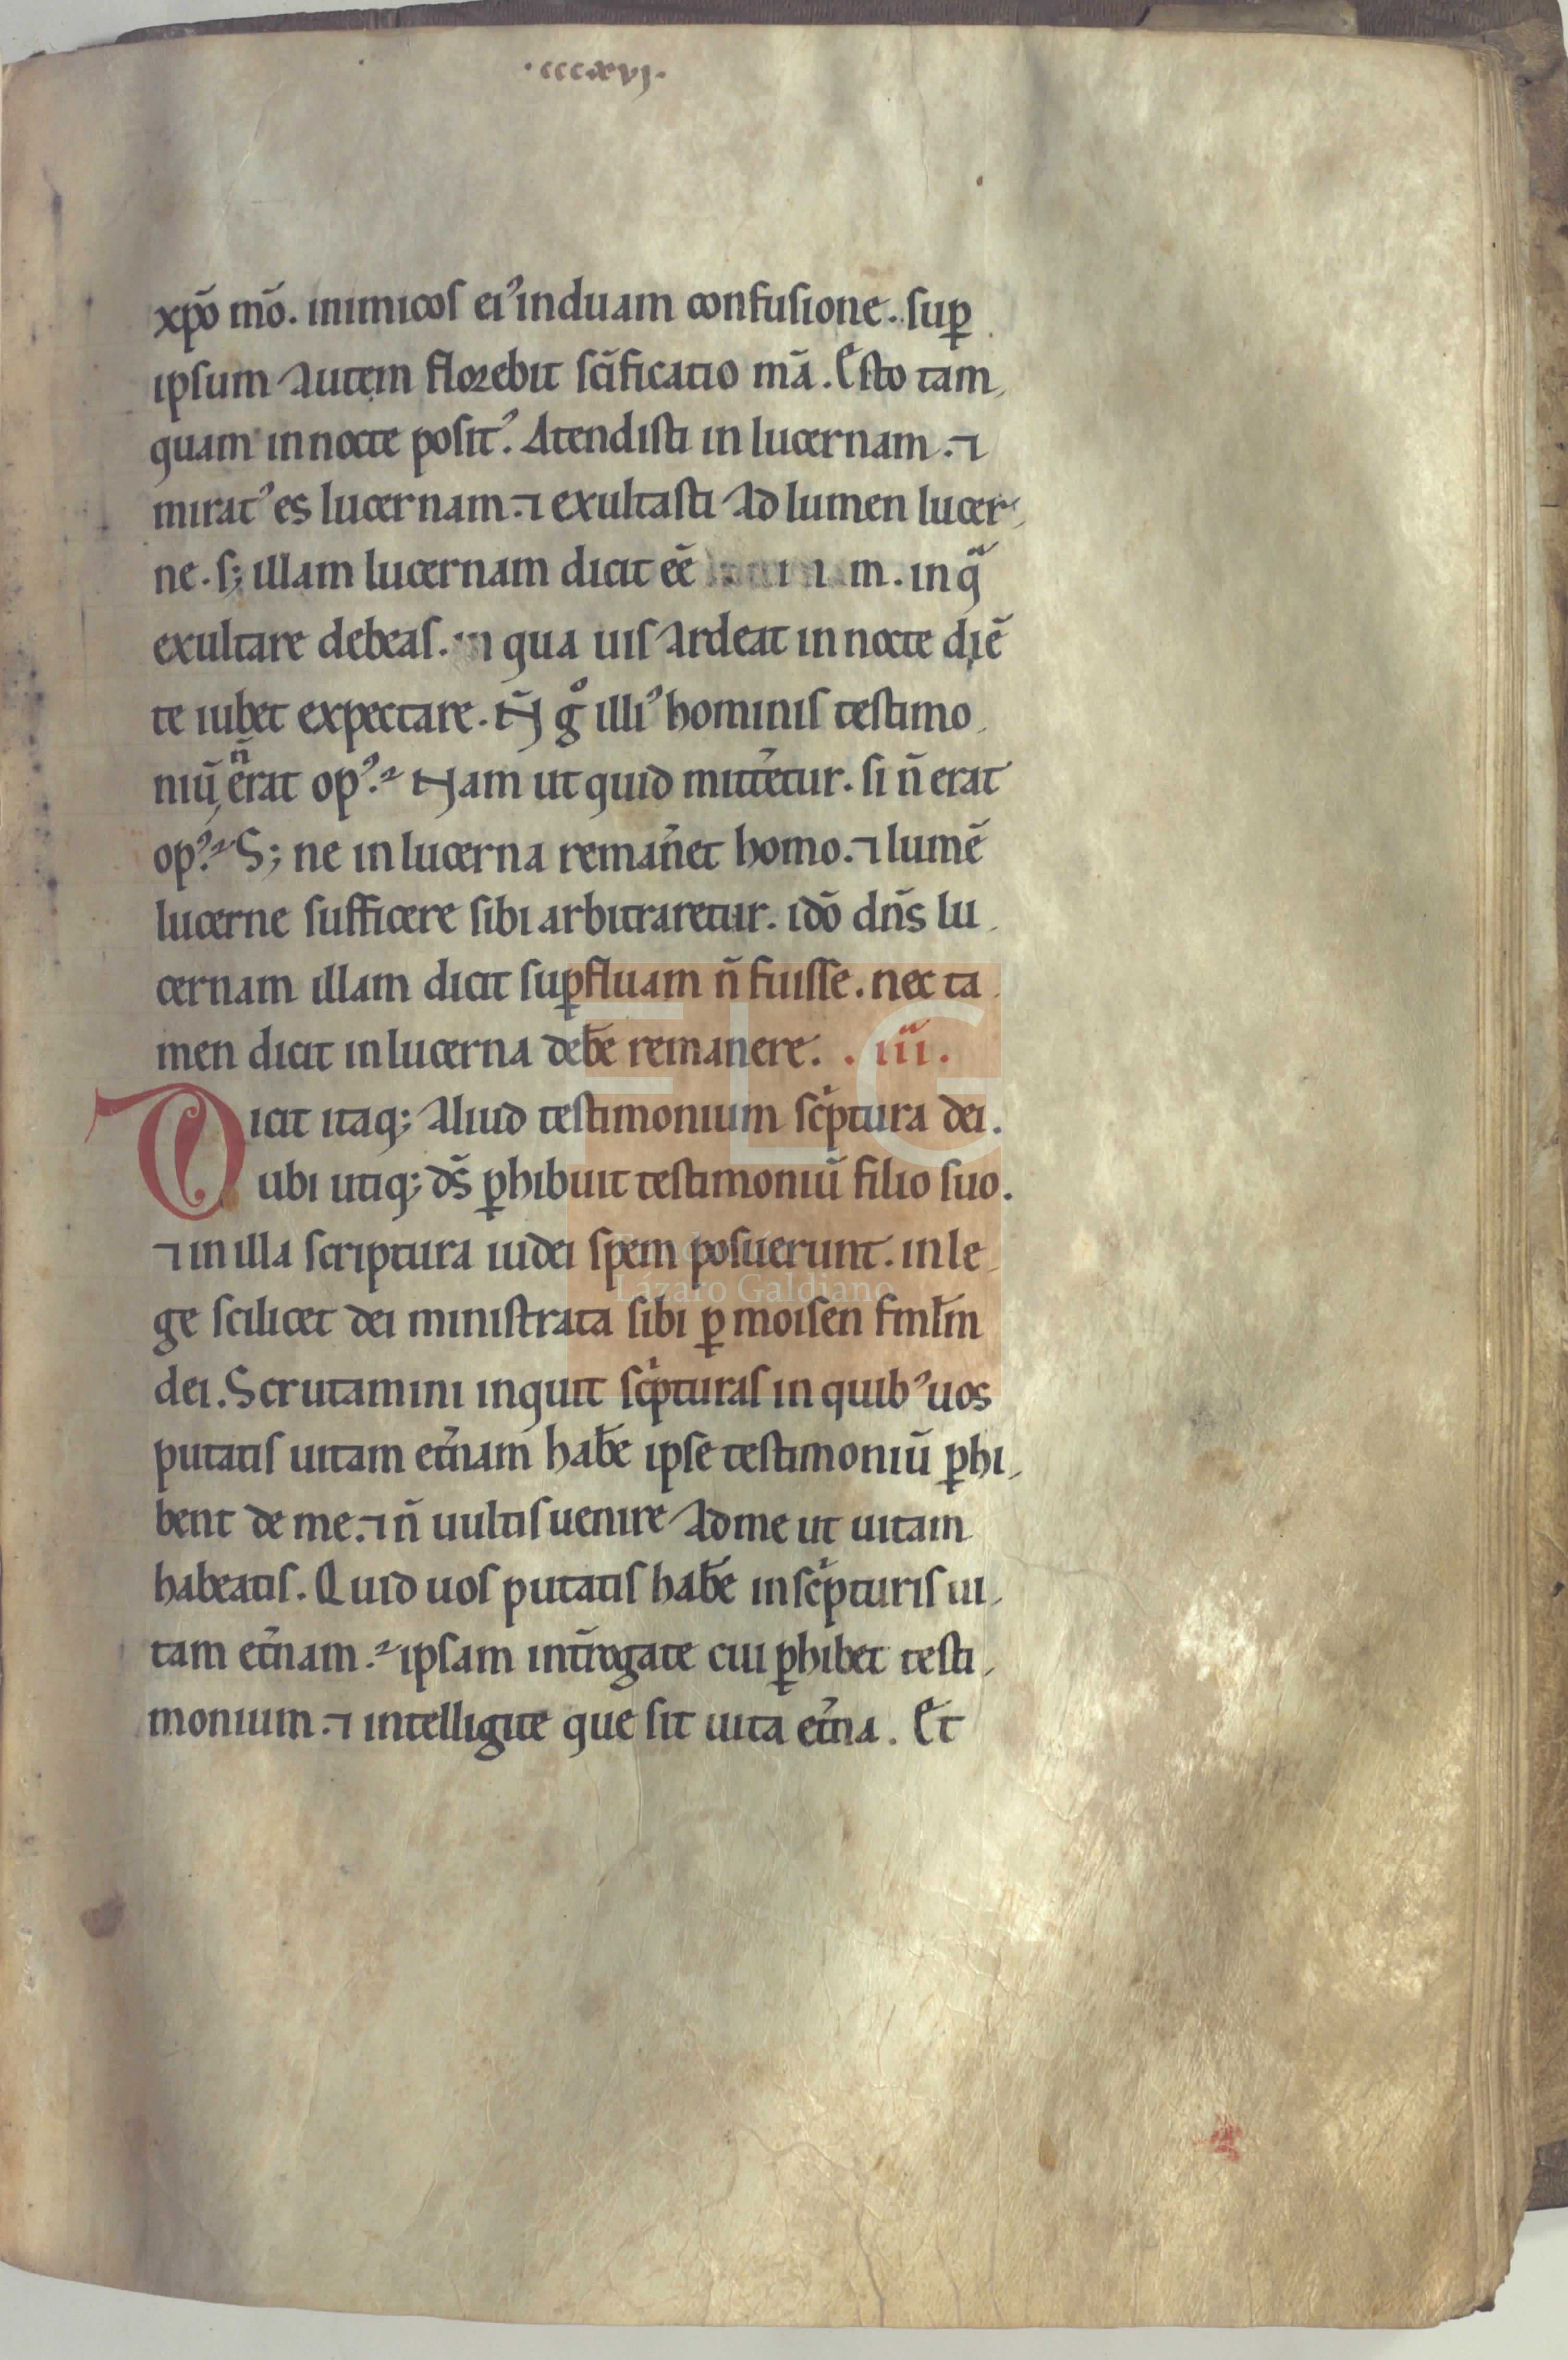 ·cccxvi·
xpō mō. inimicos ei’ induam confusione. sup̱
ipsum autem florebit sc̄ificatio mā. Esto tam
quam in nocte posit’. Atendisti in lucernam. ⁊
mirat’ es lucernam. ⁊ exultasti ad lumen lucer
ne. s; illam lucernam dicit eē m. in qͣ
exultare debeas. qua uis ardeat in nocte diē
te iubet expectare. N̄ gͦ illi’ hominis testimo
niū n̄ erat op’. Nam ut quid mitt̄etur. si n̄ erat
op’. S; ne in lucerna reman̄et homo. ⁊ lumē
lucerne sufficere sibi arbitraretur. idō dn̄s lu
cernam illam dicit sup̱fluam n̄ fuisse. nec ta
men dicit in lucerna deb̄e remanere. . iii.
Dicit itaq; aliud testimonium sc̍ptura dei.
ubi utiq; ds̄ p̱hibuit testimoniū filio suo.
⁊ in illa scriptura iudei spem posuerunt. in le
ge scilicet dei ministrata sibi p̱ moisen fml̄m
dei. Scrutamini inquit sc̍pturas in quib’ uos
putatis uitam et̄nam hab̄e ipse testimoniū p̱hi
bent de me. ⁊ n̄ uultis uenire ad me ut uitam
habeatis. Quid uos putatis hab̄e in sc̍pturis ui
tam et̄nam. ipsam int̄rogate cui p̱hibet testi
monium. ⁊ intelligite que sit uita et̄na. Et
FLG
Lázaro Galdiano